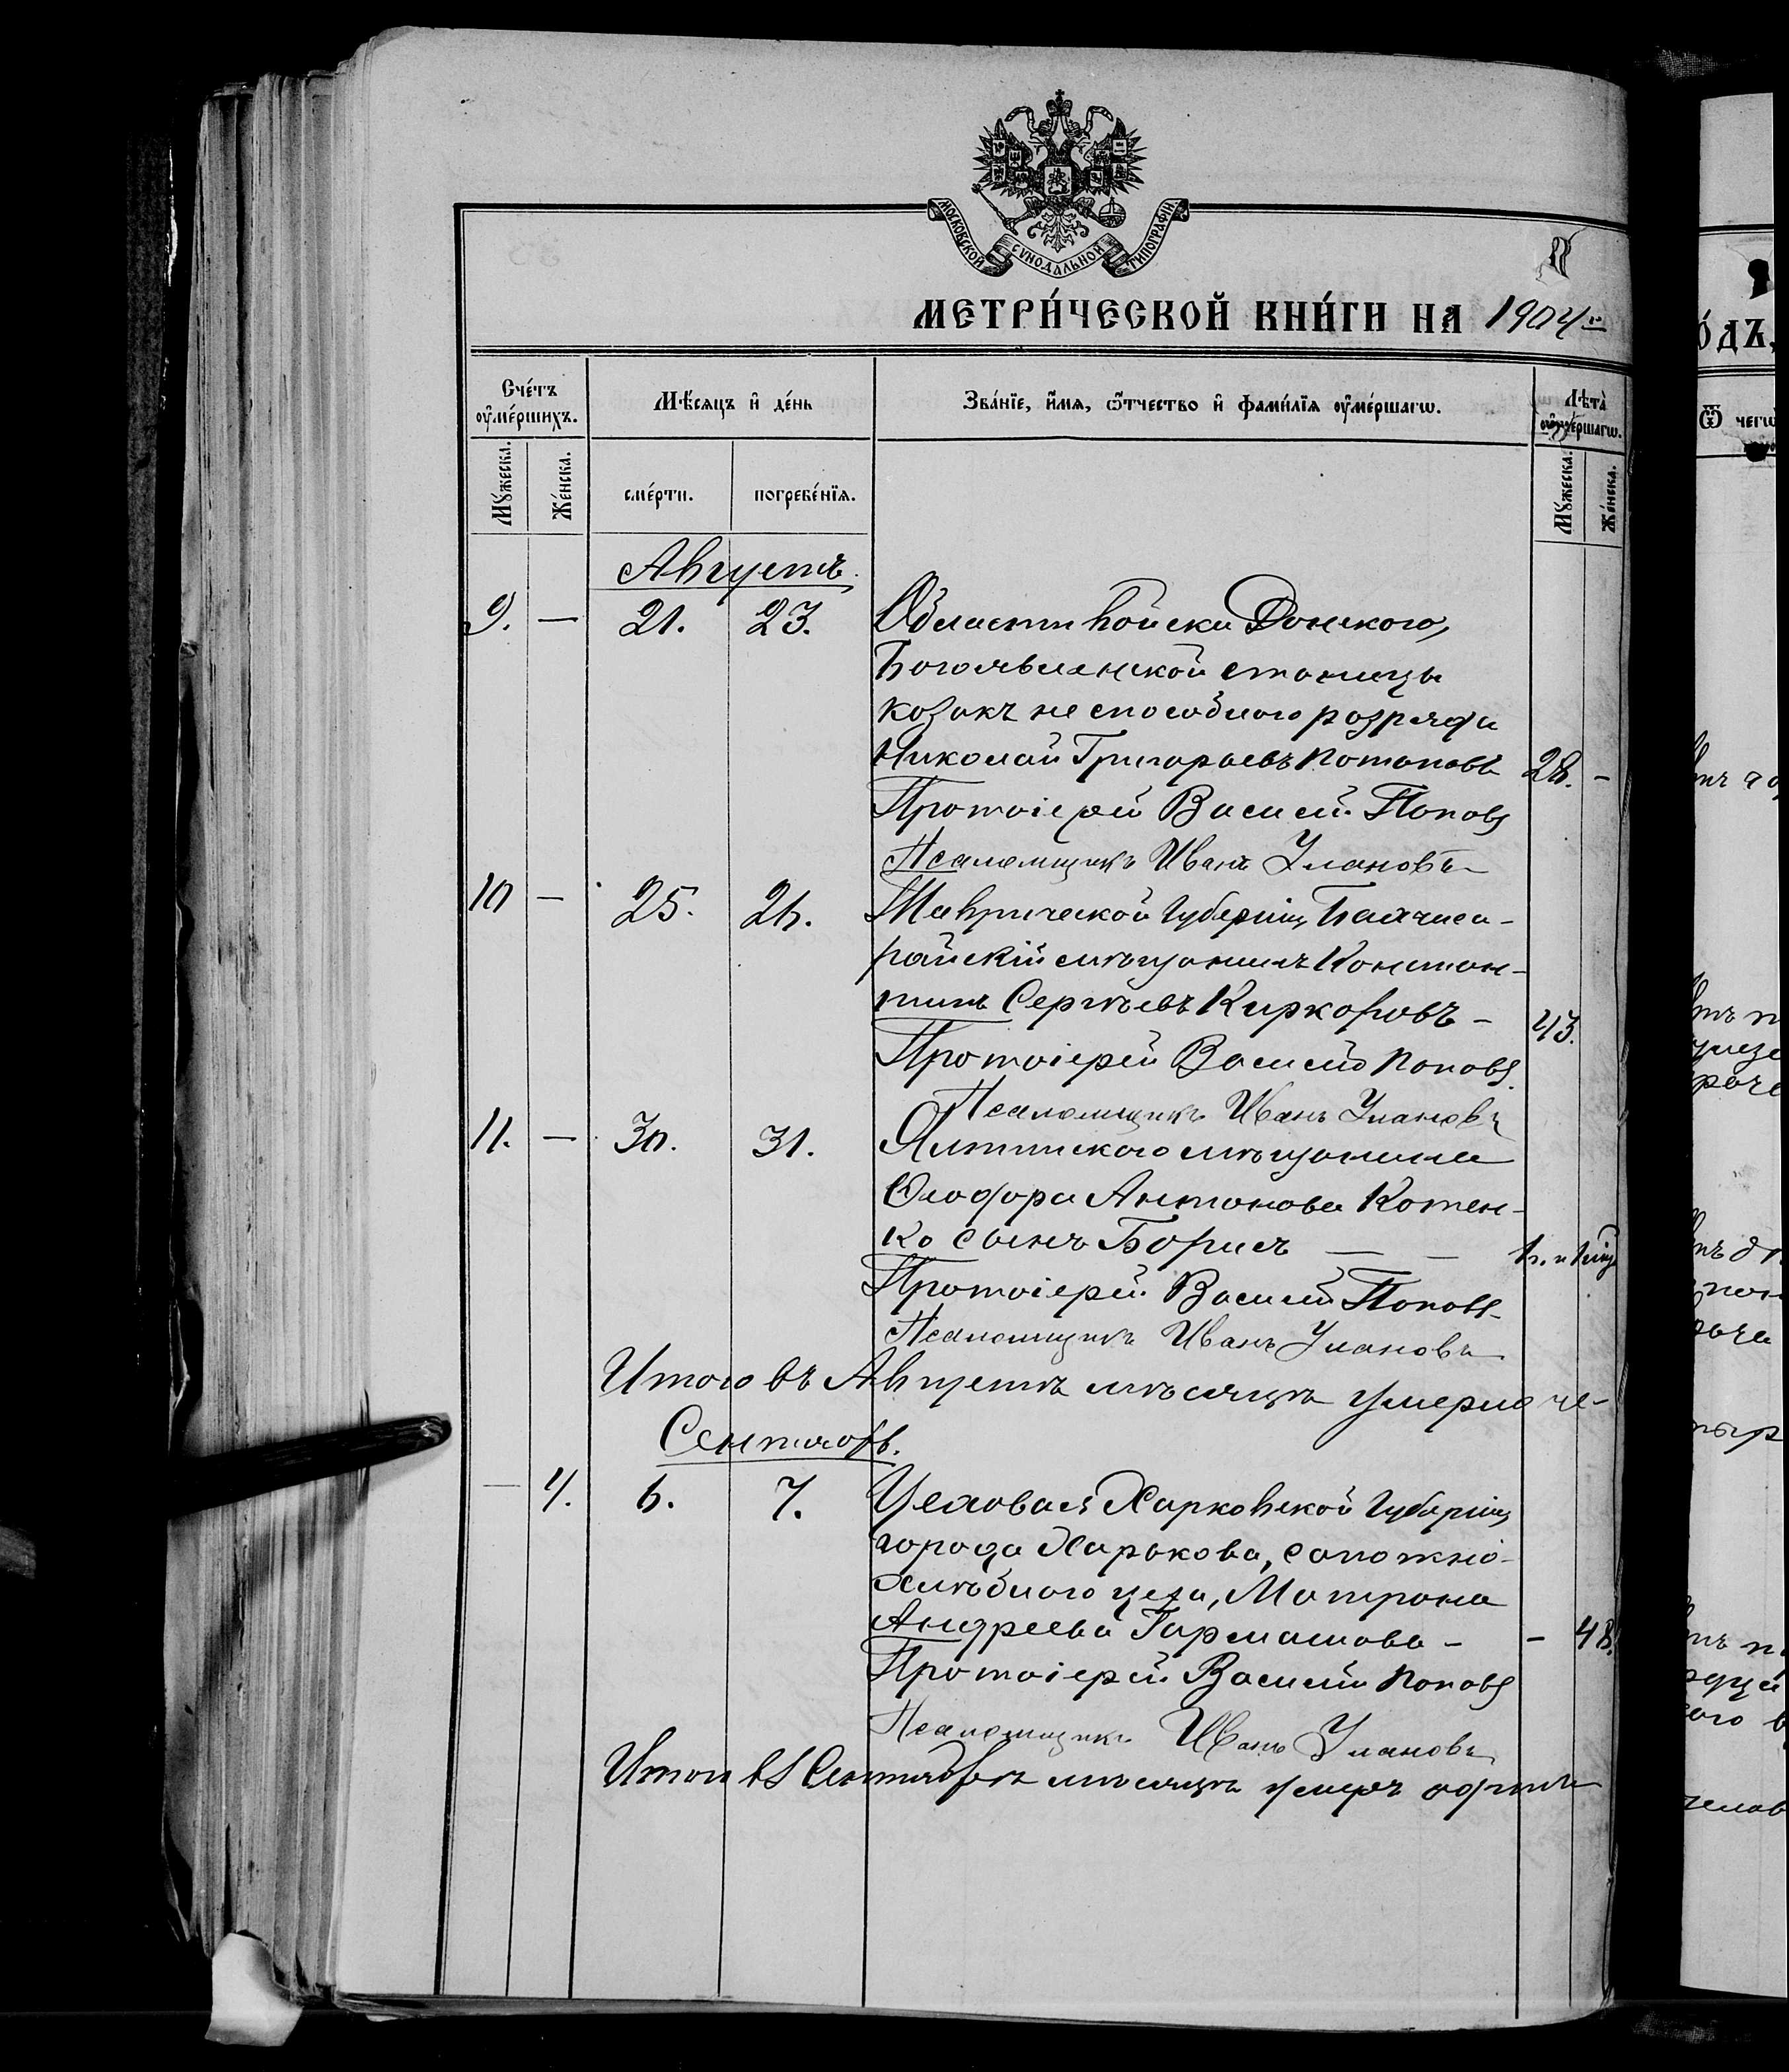 МОСКОВСКОЙ СУНОДАЛЬНОЙ ТИПОГРАФІИ
МЕТРИ́ЧЕСКОЙ КНИ́ГИ НА 1904 г.
Сче́тъ ᲂу҆ме́ршихъ.
Мѣ́сяцъ и҆ де́нь
Зва́нїе, и҆́мя, ѻ҆́тчество и҆ фами́лїя ᲂу҆ме́ршагѡ.
Лѣта̀ ᲂу҆ме́ршагѡ.
Мꙋ́жеска. Же́нска. сме́рти. погребе́нїя. Мꙋ́жеска. Же́нска.
Августъ.
9. — 21. 23. Области войска Донского,
Богоявленской станицы
козакъ не способного розряда
Николай Григорьевъ Потаповъ 28. -
Протоіерей Василій Поповъ
Псаломщикъ Иванъ Улановъ
10 — 25. 26. Таврической губерніи, Бахчиса-
райскій мѣщанинъ Констан-
тинъ Сергѣевъ Киркоровъ - 43.
Протоіерей Василій Поповъ.
Псаломщикъ Иванъ Улановъ
11. — 30. 31. Ялтинского мѣщанина
Ѳеодора Антонова Котен-
ко сынъ Борисъ — — 1г. и 1мѣс
Протоіерей Василій Поповъ
Псаломщикъ Иванъ Улановъ
Итого въ Августѣ мѣсяцѣ умерло че-
Сентябрь.
— 4. 6. 7. Цеховая Харковской губерніи,
города Харькова, сапожно-
хлѣбного цеха, Матрона
Андреева Гармашова - - 48.
Протоіерей Василій Поповъ
Псаломщикъ Иванъ Улановъ
Итого въ Сентябрѣ мѣсяцѣ умеръ одинъ